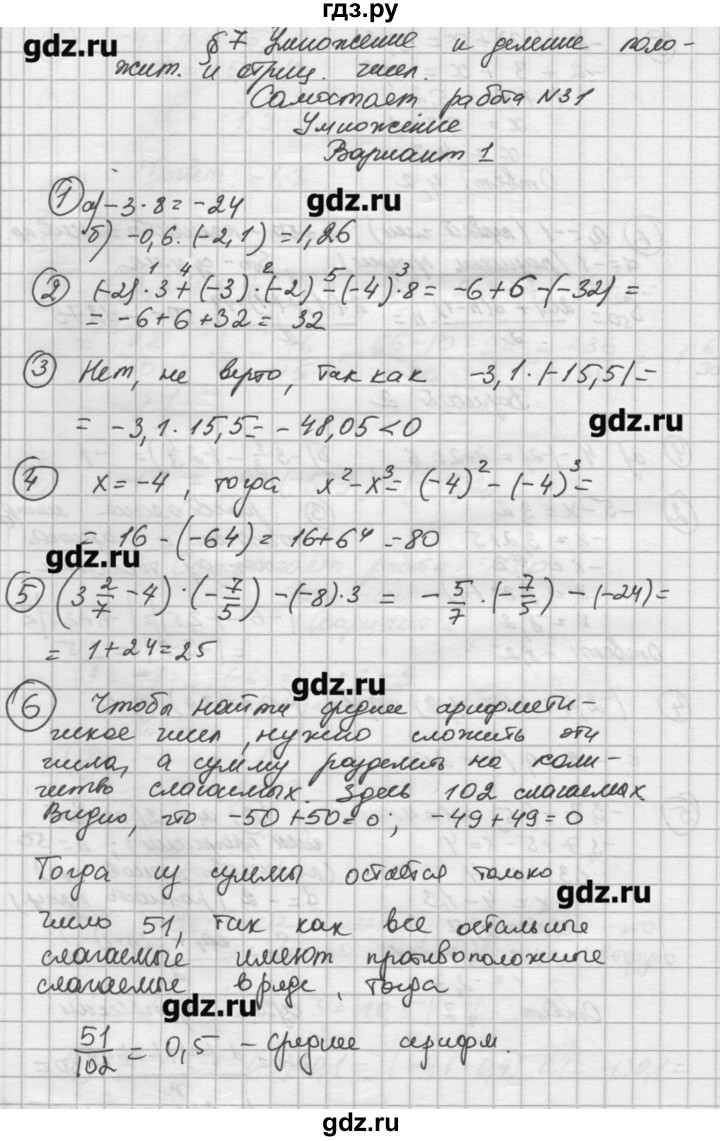 гдз.ру
gdz.ru
§7 Умножение и деление поло-
жит. и отриц. чисел.
Самостоят работа N31
Умножение
Вариант 1
① а) -3 · 8 = -24
gdz.ru
б) -0,6 · (-2,1) = 1,26
② (-2) · 3 + (-3) · (-2) - (-4) · 8 = -6+6-(-32) =
1 4 2 5 3
= -6+6+32 = 32
③ Нет, не верто, так как -3,1 · |-15,5| =
= -3,1 · 15,5 = -48,05 < 0
gdz.ru
④ x = -4, тогда x² - x³ = (-4)² - (-4)³ =
= 16 - (-64) = 16+64 = 80
gdz.ru
⑤ (3 2/7 - 4) · (-7/5) - (-8) · 3 = -5/7 · (-7/5) - (-24) =
= 1+24 = 25
gdz.ru
⑥ Чтобы найти среднее арифмети-
ческое чисел, нужно сложить эти
числа, а сумму разделить на коли-
чество слагаемых. Здесь 102 слагаемых
Видно, что -50+50=0; -49+49=0
Тогда из суммы остается только
gdz.ru
число 51, так как все остальные
слагаемые имеют противоположные
слагаемые в ряде, тогда
gdz.ru
51/102 = 0,5 - среднее арифм.
gdz.ru